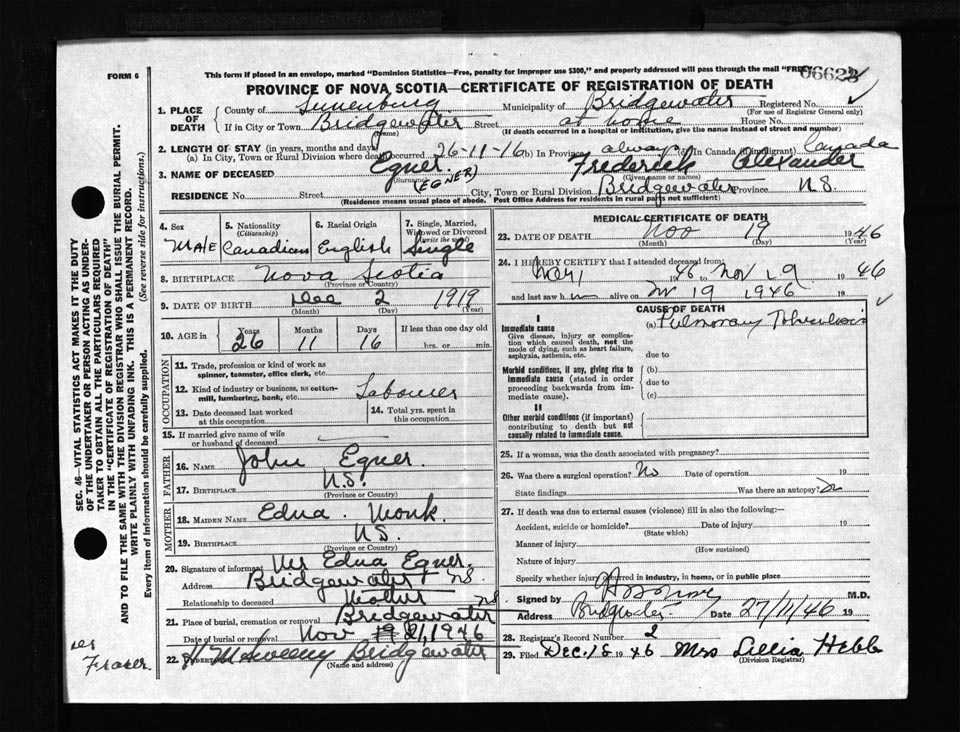 FORM 6
This form if placed in an envelope, marked "Dominion Statistics—Free, penalty for improper use $300," and properly addressed will pass through the mail "FREE"
PROVINCE OF NOVA SCOTIA—CERTIFICATE OF REGISTRATION OF DEATH
1. PLACE OF DEATH
County of Lunenburg Municipality of Bridgewater Registered No.
(For use of Registrar General only)
If in City or Town Bridgewater Street at home House No.
(Name) (If death occurred in a hospital or institution, give the name instead of street and number)
2. LENGTH OF STAY (in years, months and days)
(a) In City, Town or Rural Division where death occurred 26-11-16 (b) In Province always (c) In Canada (if immigrant) Canada
3. NAME OF DECEASED Egner (EGNER) Frederick Alexander
(Surname) (Given name or names)
RESIDENCE No. Street City, Town or Rural Division Bridgewater Province N.S.
(Residence means usual place of abode. Post Office Address for residents in rural parts not sufficient)
4. Sex Male
5. Nationality (Citizenship) Canadian
6. Racial Origin English
7. Single, Married, Widowed or Divorced (write the word) Single
8. BIRTHPLACE Nova Scotia
(Province or Country)
9. DATE OF BIRTH Dec 2 1919
(Month) (Day) (Year)
10. AGE in Years 26 Months 11 Days 16 If less than one day old hrs. or min.
OCCUPATION
11. Trade, profession or kind of work as spinner, teamster, office clerk, etc.
12. Kind of industry or business, as cotton-mill, lumbering, bank, etc. Labourer
13. Date deceased last worked at this occupation
14. Total yrs. spent in this occupation
15. If married give name of wife or husband of deceased
FATHER
16. NAME John Egner.
17. BIRTHPLACE N.S.
(Province or Country)
MOTHER
18. MAIDEN NAME Edna Monk.
19. BIRTHPLACE N.S.
(Province or Country)
20. Signature of informant Mrs Edna Egner.
Address Bridgewater NS
Relationship to deceased Mother
21. Place of burial, cremation or removal Bridgewater NS
Date of burial or removal Nov 21, 1946
22. UNDERTAKER Bridgewater
(Name and address)
MEDICAL CERTIFICATE OF DEATH
23. DATE OF DEATH Nov 19 1946
(Month) (Day) (Year)
24. I HEREBY CERTIFY that I attended deceased from:
46 to Nov 19 1946
and last saw him alive on Nov 19 1946 19
CAUSE OF DEATH
I
Immediate cause
Give disease, injury or complication which caused death, not the mode of dying, such as heart failure, asphyxia, asthenia, etc.
(a) Pulmonary Tuberculosis
due to
Morbid conditions, if any, giving rise to immediate cause (stated in order proceeding backwards from immediate cause).
(b)
due to
(c)
II
Other morbid conditions (if important) contributing to death but not causally related to immediate cause.
25. If a woman, was the death associated with pregnancy?
26. Was there a surgical operation? No Date of operation 19
State findings Was there an autopsy? no
27. If death was due to external causes (violence) fill in also the following:—
Accident, suicide or homicide? Date of injury 19
(State which)
Manner of injury
(How sustained)
Nature of injury
Specify whether injury occurred in industry, in home, or in public place
Signed by M.D.
Address Bridgewater Date 27/11/46 19
28. Registrar's Record Number 2
29. Filed Dec. 18 1946 Mrs Lillia Hebb
(Division Registrar)
SEC. 46—VITAL STATISTICS ACT MAKES IT THE DUTY OF THE UNDERTAKER OR PERSON ACTING AS UNDERTAKER TO OBTAIN ALL THE PARTICULARS REQUIRED IN THE "CERTIFICATE OF REGISTRATION OF DEATH" AND TO FILE THE SAME WITH THE DIVISION REGISTRAR WHO SHALL ISSUE THE BURIAL PERMIT.
WRITE PLAINLY WITH UNFADING INK. THIS IS A PERMANENT RECORD.
Every item of information should be carefully supplied. (See reverse side for instructions.)
Fraser.